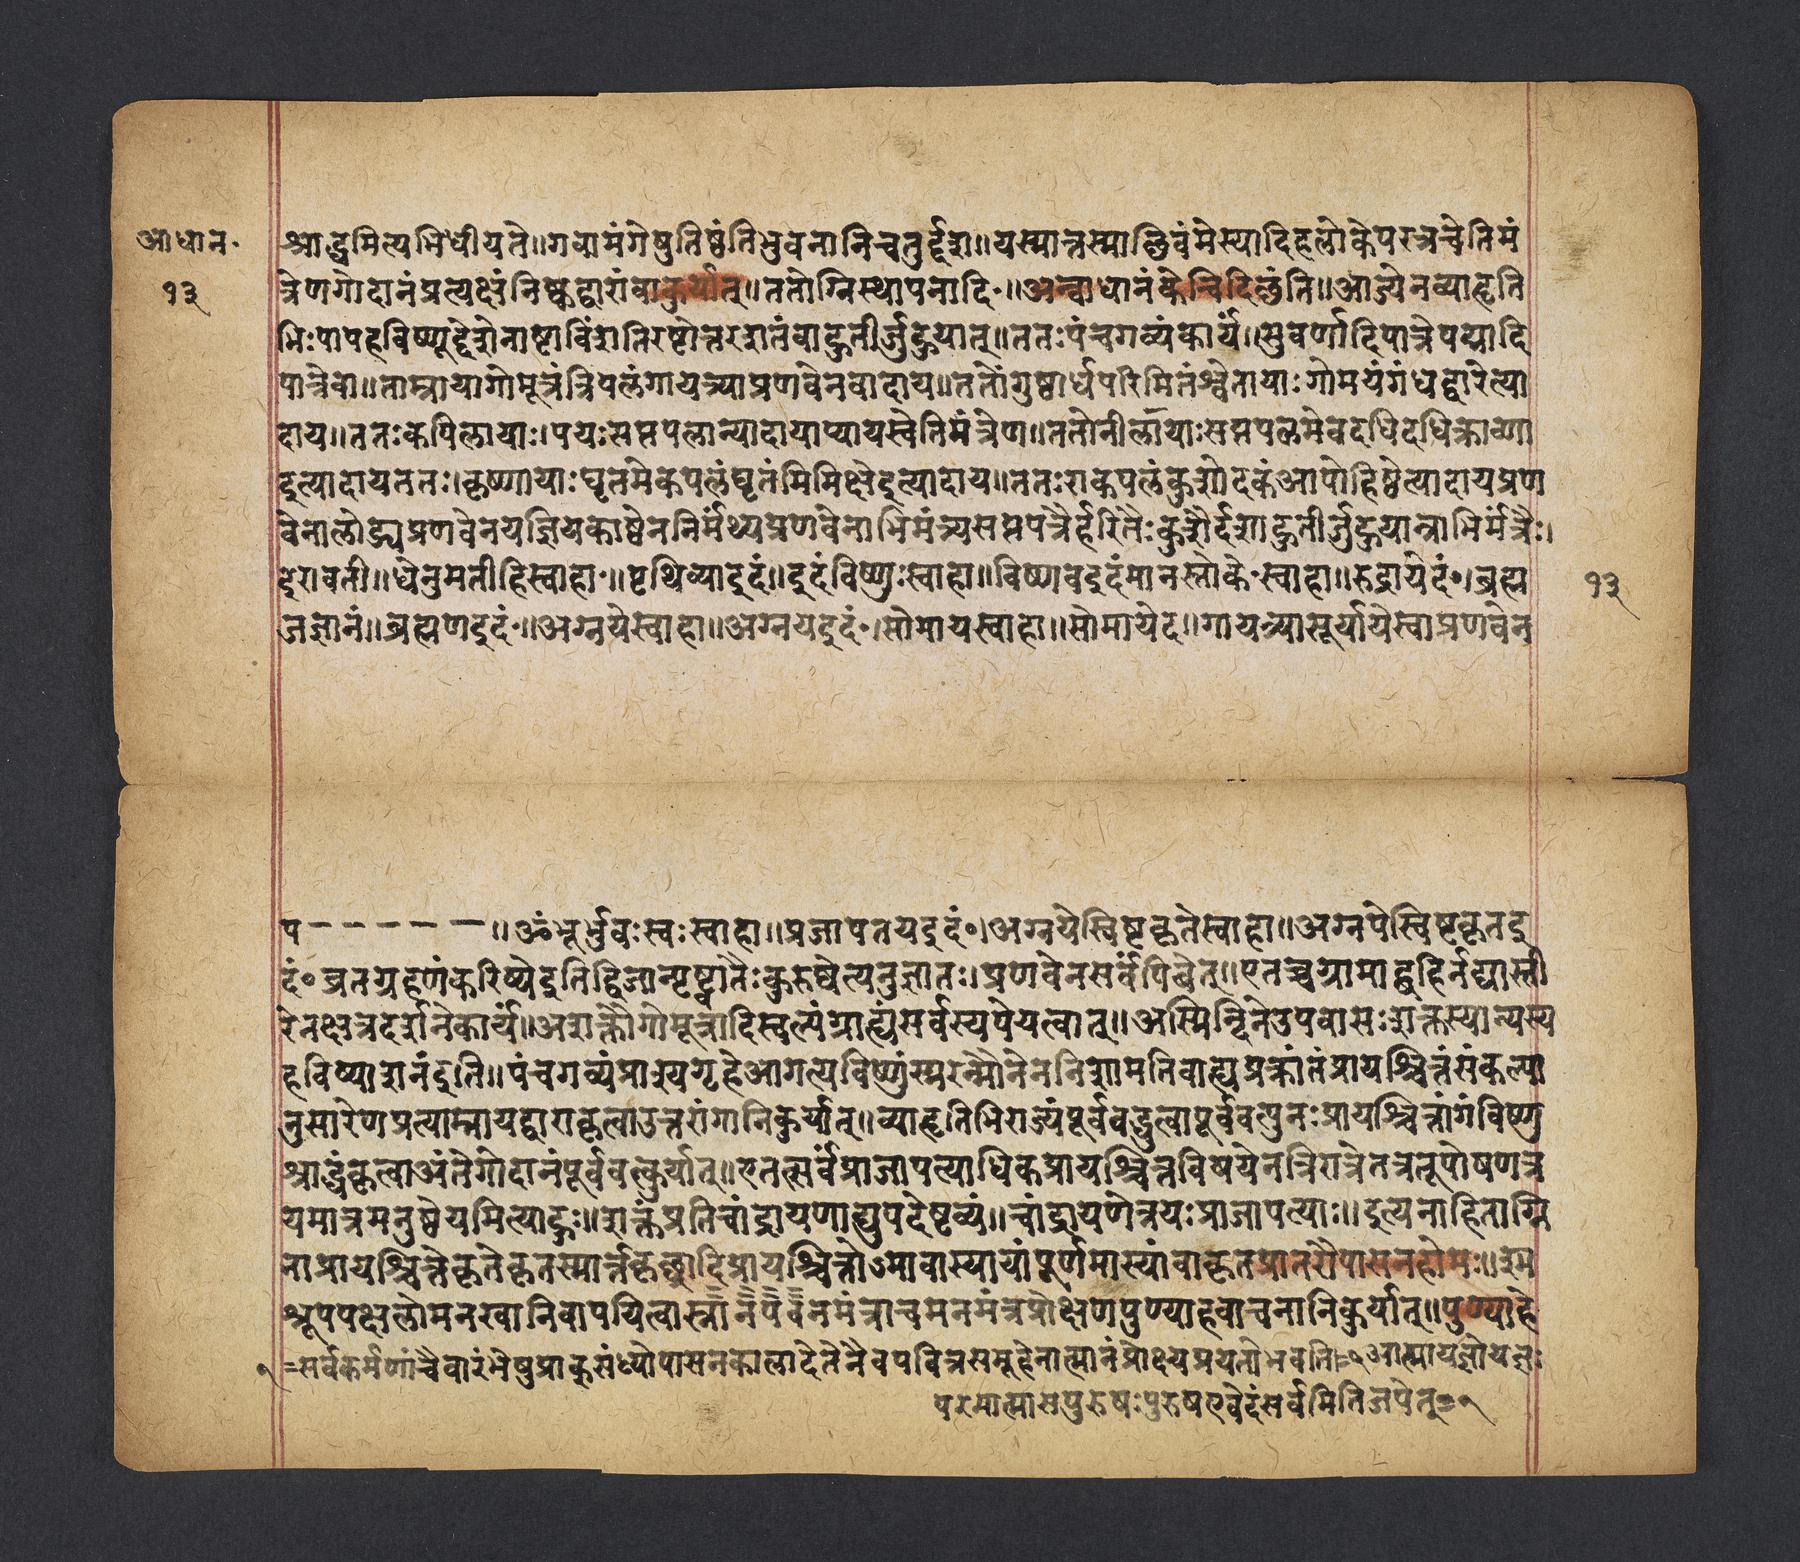 आधान॰
१३
श्राद्धमित्यभिधीयते॥गवामंगेषुतिष्ठंतिभुवनानिचतुर्द्दश॥यस्मात्तस्माच्छिवंमेस्यादिहलोकेपरत्रचेतिमं
त्रेणगोदानंप्रत्यक्षंनिष्कद्वारांवाकुर्यात्॥ततोग्निस्थापनादि॰॥अन्वाधानंकेचिदिछंति॥आज्येनव्याहृति
भिःपापहविष्णूद्देशेनाष्टाविंशतिरष्टोत्तरशतंवाहुतीर्जुहुयात्॥ततःपंचगव्यंकार्यं॥सुवर्णादिपात्रेपद्मादि
पात्रेवा॥ताम्रायागोमूत्रंत्रिपलंगायत्र्याप्रणवेनवादाय॥ततोंगुष्ठार्धपरिमितंश्वेतायाःगोमयंगंधद्वारेत्या
दाय॥ततःकपिलायाः।पयःसप्तपलान्यादायाप्यायस्वेतिमंत्रेण॥ततोनीलायाःसप्तपळमेवदधिदधिक्राव्णा
इत्यादायततः।कृष्णायाःघृतमेकपलंघृतंमिमिक्षेइत्यादाय॥ततःएकपलंकुशोदकंआपोहिष्ठेत्यादायप्रण
वेनालोड्यप्रणवेनयज्ञियकाष्ठेननिर्मथ्यप्रणवेनाभिमंत्र्यसप्तपत्रैर्हरितैःकुशैर्दशाहुतीर्जुहुयान्नाभिर्मंत्रैः।
इरावती॥धेनुमतीहिस्वाहा॰॥पृथिव्याइदं॥इदंविष्णुःस्वाहा॥विष्णवइदंमानस्तोके॰स्वाहा॥रुद्रायेदं॰।ब्रह्म
१३
जज्ञानं॥ब्रह्मणइदं॰॥अग्नयेस्वाहा॥अग्नयइदं॰।सोमायस्वाहा॥सोमायेद॥गायत्र्यासूर्यायेस्वाप्रणवेन
प – – – – – ॥ॐभूर्भुवःस्वःस्वाहा॥प्रजापतयइदं॰।अग्नयेस्विष्टकृतेस्वाहा॥अग्नयेस्विष्टकृतइ
दं॰व्रतग्रहणंकरिष्येइतिद्विजान्पृष्ट्वातैःकुरुष्वेत्यनुज्ञातः।प्रणवेनसर्वंपिबेत्॥एतच्चग्रामाद्बहिर्नद्यास्ती
रेनक्षत्रदर्शनेकार्यं॥अशक्तौगोमूत्रादिस्वल्पंग्राह्यंसर्वस्यपेयत्वात्॥अस्मिन्दिनेउपवासःशक्तस्यान्यस्य
हविष्याशनंइति॥पंचगव्यंप्राश्यगृहेआगत्यविष्णुंस्मरन्मौनेननिशामतिवाह्यप्रक्रांतंप्रायश्चित्तंसंकल्पा
नुसारेणप्रत्याम्नायद्वाराकृत्वाउत्तरांगानिकुर्यात्॥व्याहृतिभिराज्यंपूर्ववद्धुत्वापूर्ववत्पुनःप्रायश्चित्तांगंविष्णु
श्राद्धंकृत्वाअंतेगोदानंपूर्ववत्कुर्यात्॥एतत्सर्वंप्राजापत्याधिकप्रायश्चित्तविषयेनत्रिरात्रेतत्रतूपोषणत्र
यमात्रमनुष्ठेयमित्याहुः॥शक्तंप्रतिचांद्रायणाद्युपदेष्टव्यं॥चांद्रायणेत्रयःप्राजापत्याः॥इत्यनाहिताग्नि
नाप्रायश्चित्तेकृतेकृतस्मार्त्तकृच्छ्रादिप्रायश्चित्तोऽमावास्यायांपूर्णमास्यांवाकृतप्रातरौपासनहोमः॥श्म
श्रूपपक्षलोमनखानिवापयित्वास्नानंपवनमंत्राचमनमंत्रप्रोक्षणपुण्याहवाचनानिकुर्यात्॥पुण्याहे
९=सर्वकर्मणांचैवारंभेषुप्राक्संध्योपासनकालादेतेनैवपवित्रसमूहेनात्मानंप्रोक्ष्यप्रयतोभवति=९आत्मायज्ञोयज्ञः
परमात्मासपुरुषःपुरुषएवेदंसर्वमितिजपेत्=९